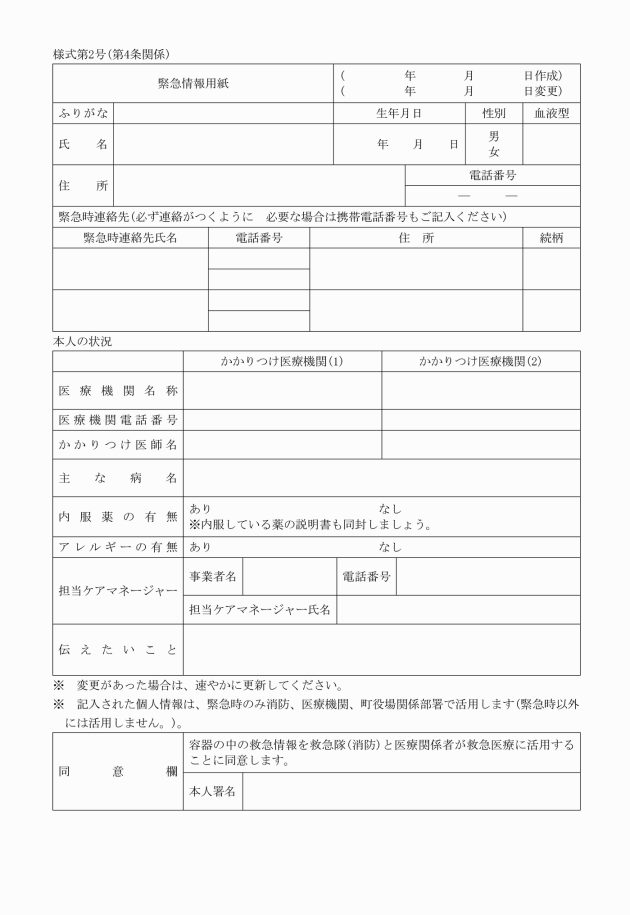 様式第2号(第4条関係)
緊急情報用紙
(　　　　年　　　月　　　日作成)
(　　　　年　　　月　　　日変更)
ふりがな　生年月日　性別　血液型
氏　　名　年　　月　　日　男
女
住　　所　電話番号
―　　―
緊急時連絡先(必ず連絡がつくように　必要な場合は携帯電話番号もご記入ください)
緊急時連絡先氏名　電話番号　住　所　続柄
本人の状況
かかりつけ医療機関(1)　かかりつけ医療機関(2)
医療機関名称
医療機関電話番号
かかりつけ医師名
主な病名
内服薬の有無　あり　なし
※内服している薬の説明書も同封しましょう。
アレルギーの有無　あり　なし
担当ケアマネージャー　事業者名　電話番号
担当ケアマネージャー氏名
伝えたいこと
※　変更があった場合は、速やかに更新してください。
※　記入された個人情報は、緊急時のみ消防、医療機関、町役場関係部署で活用します(緊急時以外
には活用しません。)。
同意欄　容器の中の救急情報を救急隊(消防)と医療関係者が救急医療に活用する
ことに同意します。
本人署名